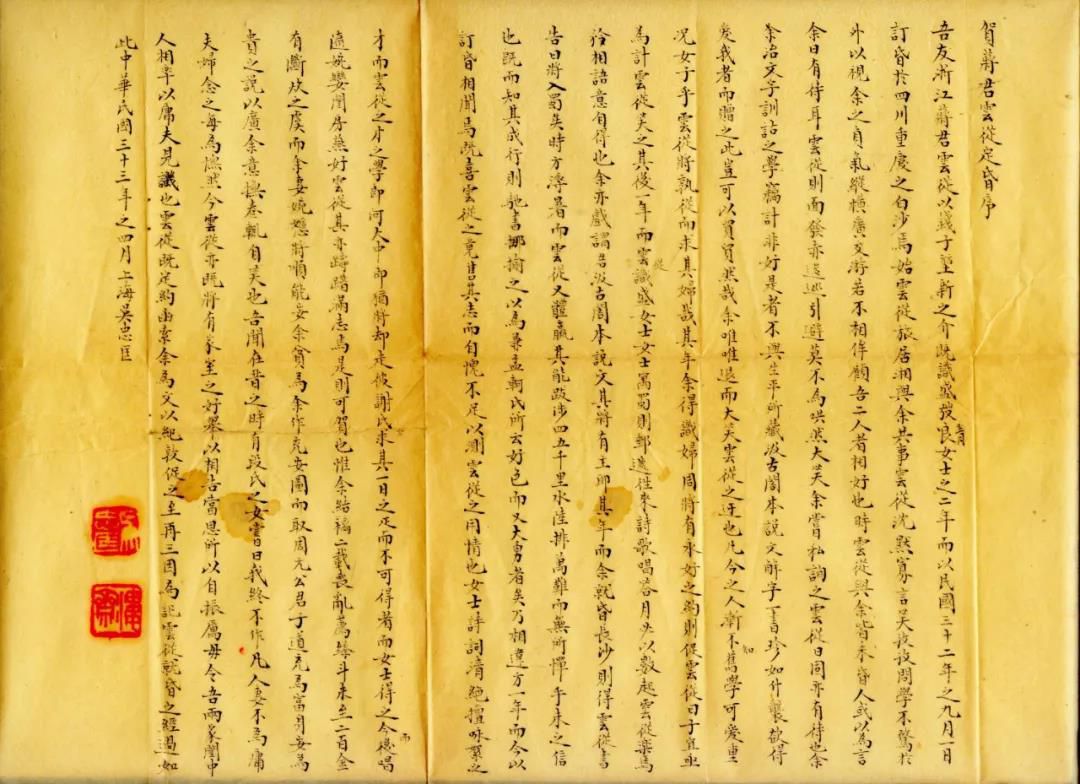 賀蔣君雲從定昏序
吾友浙江蔣君雲從以錢子堃新之介既識盛弢青女士之二年而以民國三十二年之九月一日
訂昏於四川重慶之白沙焉始雲從旅居湘與余共事雲從沈默寡言夜夜問學不騖於
外以視余之負氣縱橫廣交游若不相侔顧吾二人者相好也時雲從與余皆未昏人或以為言
余曰有待耳雲從則面發赤逡巡引避莫不為哄然大笑余嘗私詢之雲從曰同亦有待也余
素治文字訓詁之學竊計非好是者不與生平所藏汲古閣本說文解字一書珍如什襲欲得
愛我者而贈之此豈可以貿貿然哉余唯唯退而大笑雲從之迂也凡今之人新不知舊學可愛重
況女子乎雲從將孰從而求其婦哉其年余得識婦周將有永好之約則促雲從曰子宜亟
為計雲從笑之其後一年而雲從識盛女士女士寓蜀則郵遞往來詩歌唱答月必以數起雲從樂焉
矜相語意自得也余亦戲謂君汲古閣本說文其將有主耶其年而余就昏長沙則得雲從書
告曰將入蜀矣時方溽暑而雲從又體羸其能跋涉四五千里水陸排萬難而無所憚乎未之信
也既而知其成行則馳書揶揄之以為兼孟軻氏所云好色而又大勇者矣乃相違方一年而今以
訂昏相聞焉既喜雲從之竟售其志而自愧不足以測雲從之用情也女士詩詞清絕擅咏絮之
才而雲從之才之學即阿大中郎猶將却走彼謝氏求其一日之而不可得者而女士得之今而後唱
隨婉孌閨房燕好雲從其亦躊躇滿志焉是則可賀也惟余結褵二載喪亂萬端斗米至二百金
有斷炊之虞而余妻婉嫕將順能安余貧為余作充安圖而取周元公君子道充為富身安為
貴之說以廣余意撫卷輒自笑也吾聞在昔之時有段氏之女嘗曰我終不作凡人妻不為庸
夫婦念之每為憮然今雲從亦既將有家室之好舉以相告當思所以自振厲毋令吾兩家閨中
人相率以庸夫見譏也雲從既定約函索余為文以紀敦促之至再三因為記雲從就昏之經過如
此中華民國三十三年之四月上海吳忠匡